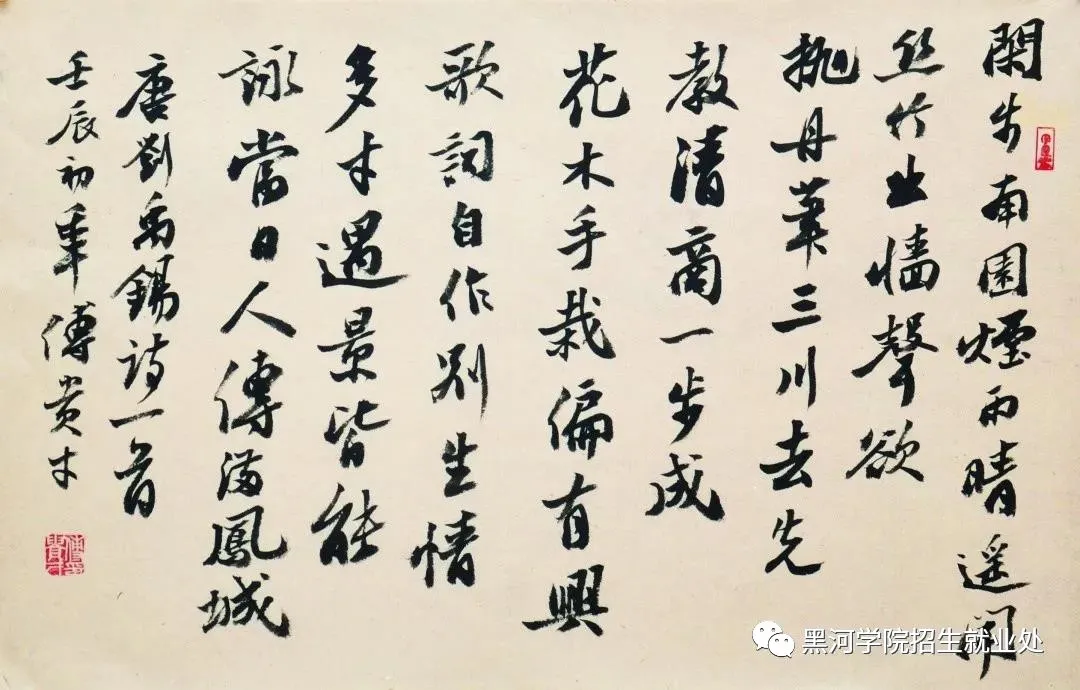 閑步南園煙雨晴遥聞
丝竹出牆聲欲
抛丹筆三川去先
教清商一步成
花木手栽偏有興
歌詞自作别生情
多才遇景皆能
詠當日人傳滿鳳城
唐劉禹錫詩一首
壬辰初 傅贵才
黑河学院招生就业处